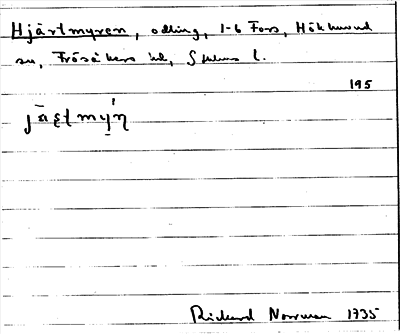 Hjärtmyren, odling, 1-6 Fors, Hökhuvud
sn, Frösåkers hd, Sthlms l.
195
Rickard Norrman 1935